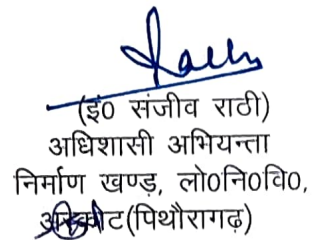 (इं0 संजीव राठी)
अधिशासी अभियन्ता
निर्माण खण्ड़, लो0नि0वि0,
अस्कोट(पिथौरागढ़)